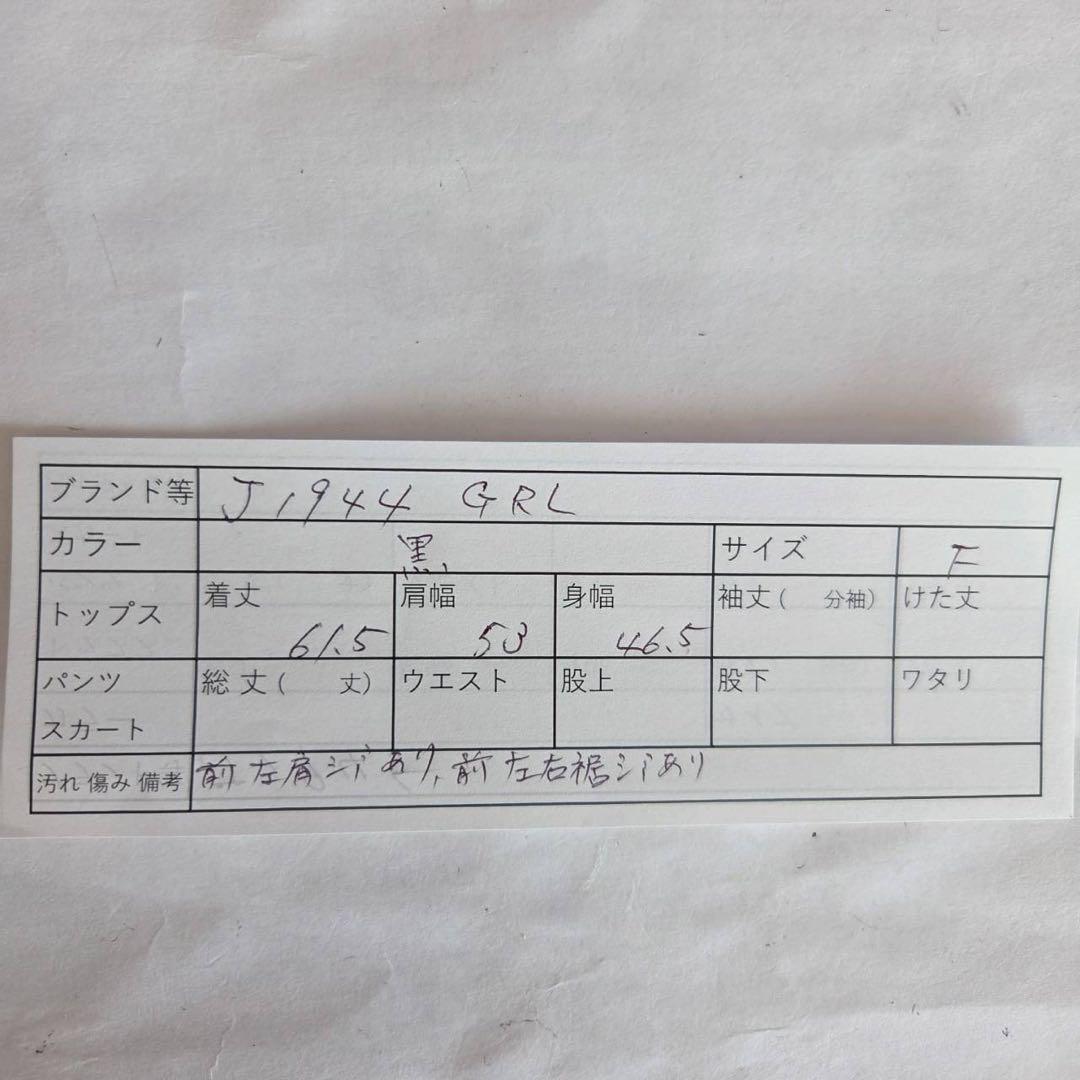 ブランド等 J1944 GRL
カラー 黒 サイズ F
トップス 着丈 61.5 肩幅 53 身幅 46.5 袖丈( 分袖) けた丈
パンツ スカート 総丈( 丈) ウエスト 股上 股下 ワタリ
汚れ 傷み 備考 前左肩シミあり、前左右裾シミあり